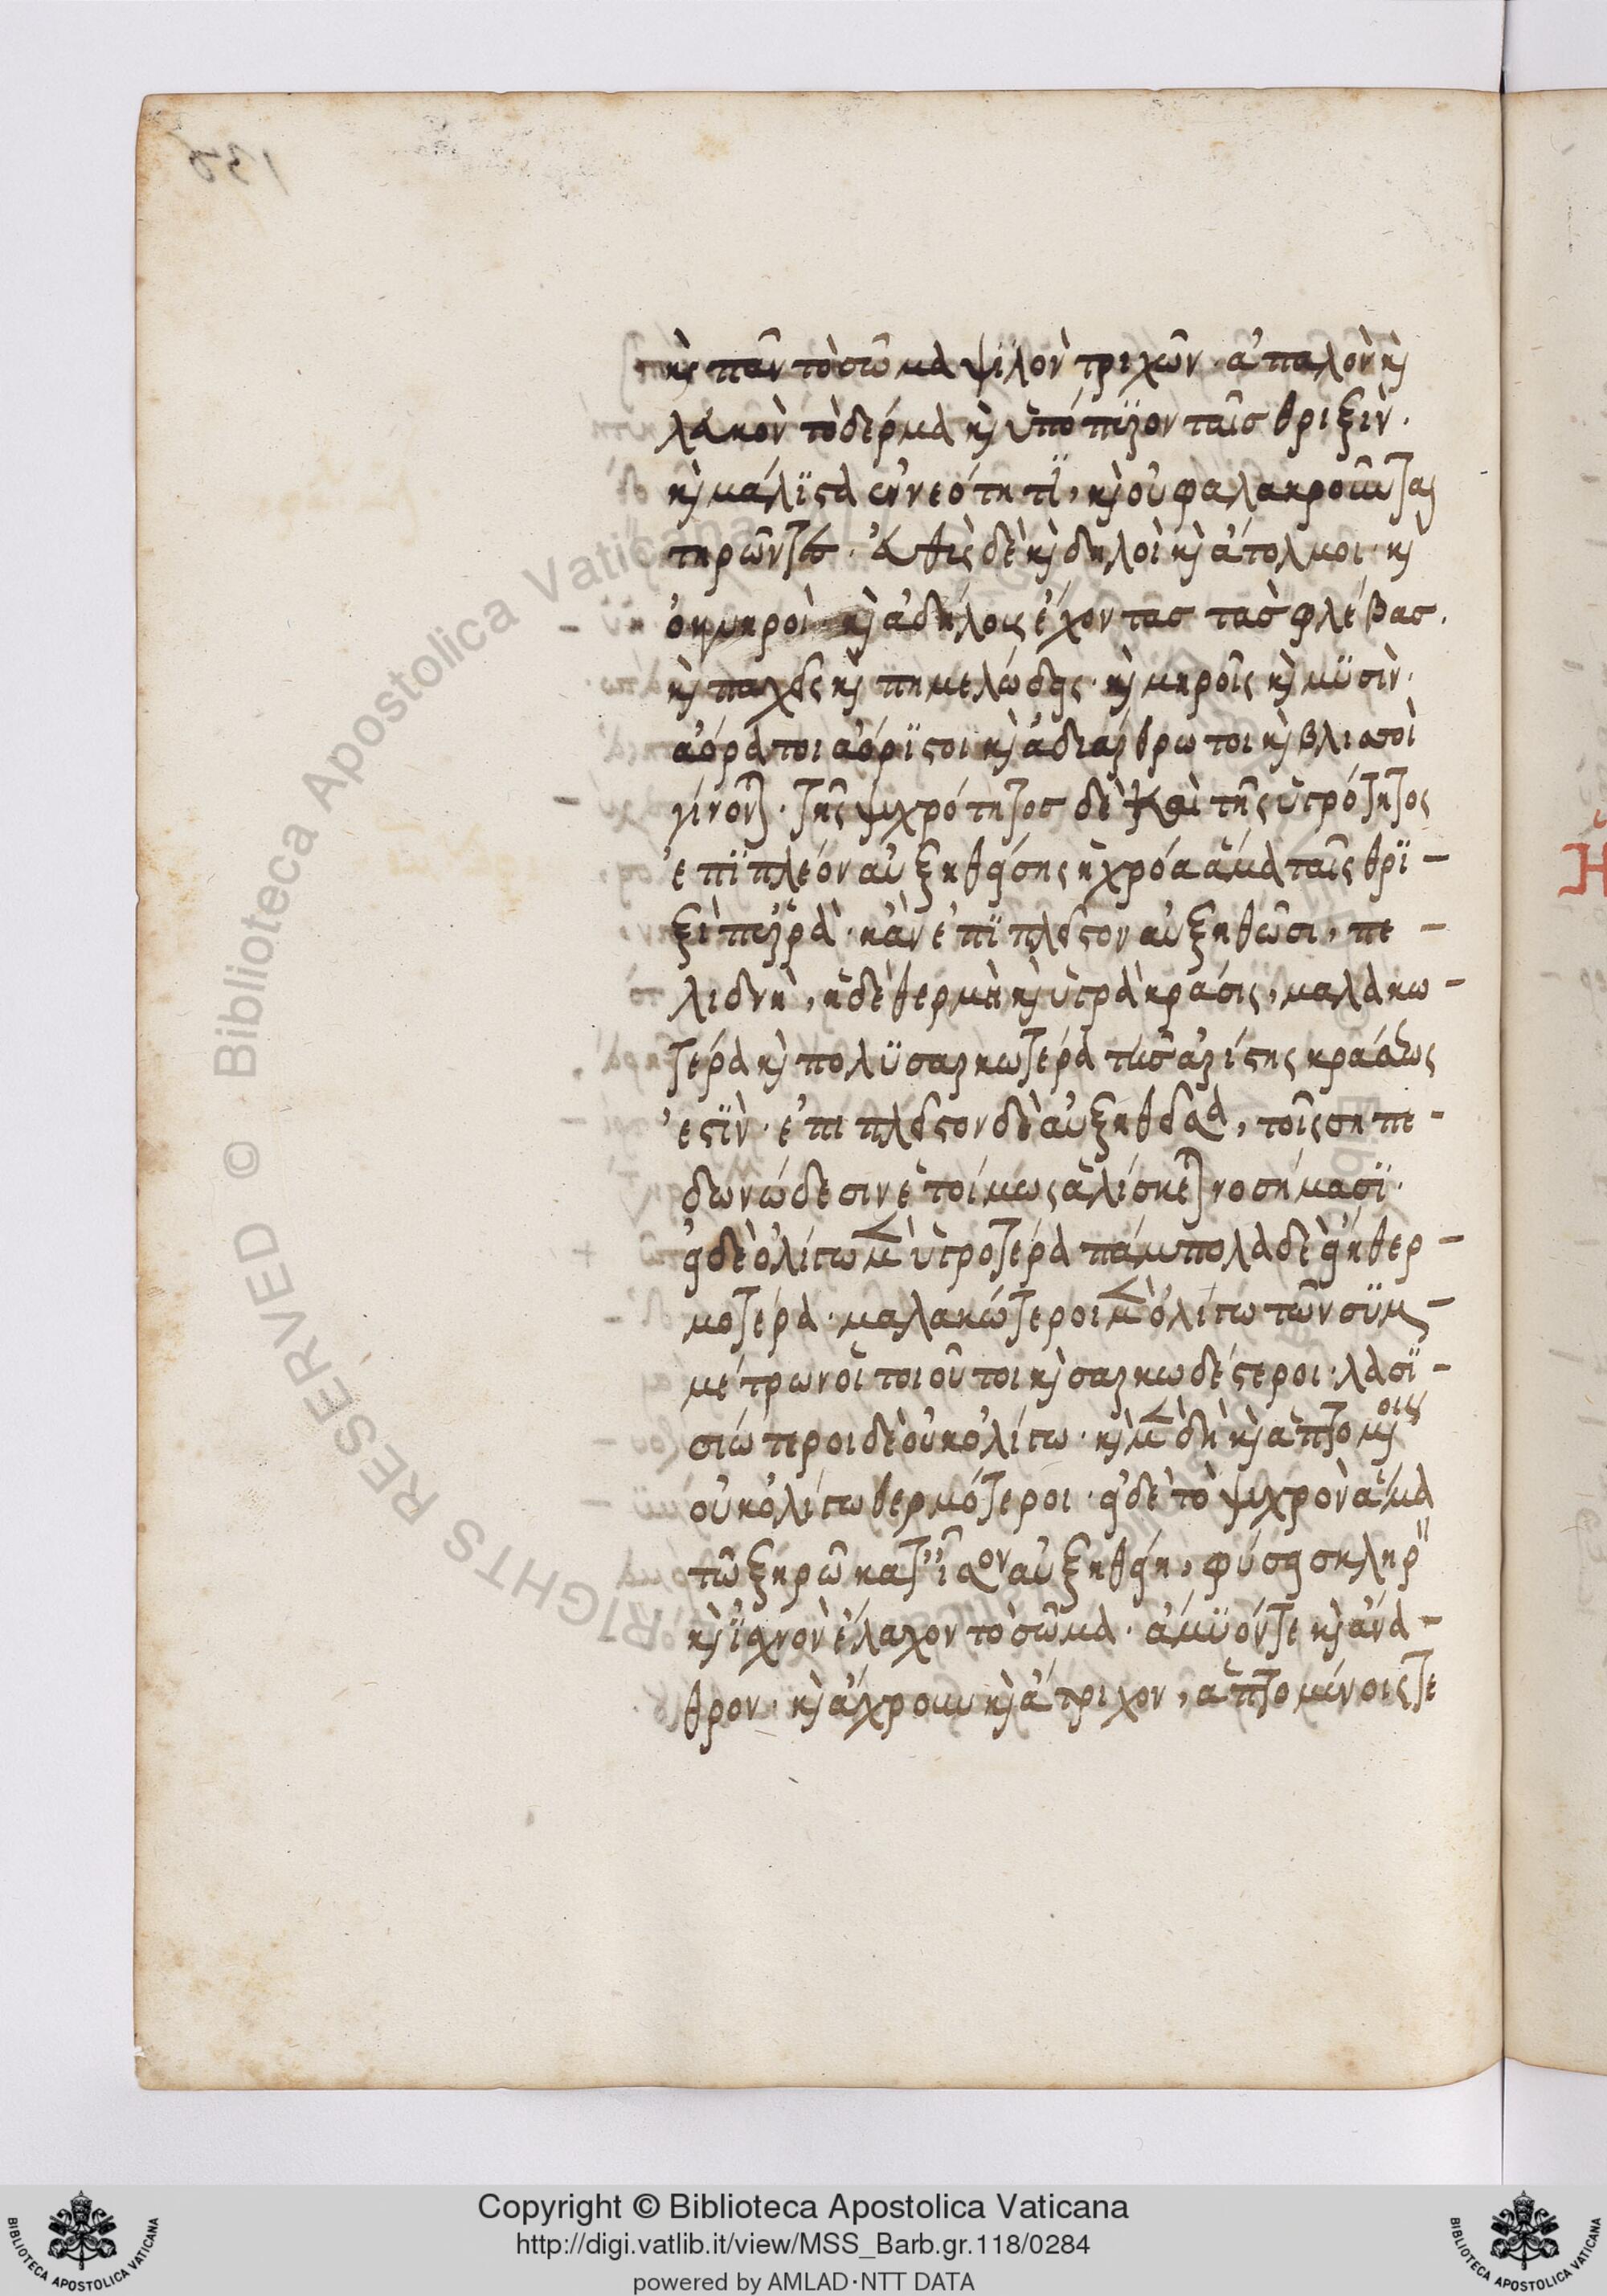 κὶ πᾶν τὸ σῶμα ψϊλὸν τριχῶν · ἀπαλὸν κὶ
λακὸν τὸ δέρμα κὶ ὑπόπυρον ταῖσ θριξὶν ·
κὶ μάλϊστα ἐν νεότητϊ, κὶ οὐ φαλακροῦνται
δὲ κὶ δηλοὶ κὶ ἄτολμοι · κὶ
ὀκνηροὶ · κὶ ἀδήλους ἔχοντασ τασ φλέβασ ·
κὶ παχεῖς κὶ πημελώδεις · κὶ μηροῖς κὶ μϋσὶν ·
ἀόρατοι ἀόρϊστοι κὶ ἀδιάρθρωτοι κὶ βλισοὶ
γίνονται · τῆς ψυχρότητοσ δὲ καὶ τῆς ὑγρότητος
ἐπϊπλέον αὐξηθείσης ἡ χρόα ἅμα ταῖς θρϊ -
ξὶ πυρρὰ · κἂν ἐπϊ πλεῖστον αὐξηθῶσι, πε -
λιδνὴ, ἡ δὲ θερμὴ κὶ ὑγρὰ κράσις, μαλακω -
τέρα κὶ πολϋσαρκωτέρα τῆσ ἀρίστης κράσεως
ἐστϊν · ἐπι πλεῖστον δὲ αὐξηθεῖσα, τοῖς σηπε -
δωνώδεσιν ἑτοίμως ἁλίσκεται νοσήμασϊ ·
εἰ δὲ ὀλίγω μὲν ὑγροτέρα πάμπολα δὲ εἴη θερ -
μοτέρα · μαλακώτεροι μὲν ὀλίγω τῶν σϋμ -
μέτρων οἱ τοιοῦτοι κὶ σαρκωδέστεροι · λασϊ -
σιώτεροι δὲ οὐκ ὀλίγω · κὶ μὲν δὴ κὶ ἁπτομένοις
οὐκ ὀλίγω θερμότεροι · εἰ δὲ τὸ ψυχρὸν ἅμα
τῶ ξηρῶ κατ' ἴσον αὐξηθείη, φύσει σκληρὸν
κὶ ἰσχνὸν ἔλαχον τὸ σῶμα · ἄμϋόν τε κὶ ἄνα -
θρον · κὶ ἄχρουν κὶ ἄτριχον, ἁπτομένοις τε
Copyright © Biblioteca Apostolica Vaticana
http://digi.vatlib.it/view/MSS_Barb.gr.118/0284
powered by AMLAD·NTT DATA
BIBLIOTECA APOSTOLICA VATICANA
BIBLIOTECA APOSTOLICA VATICANA